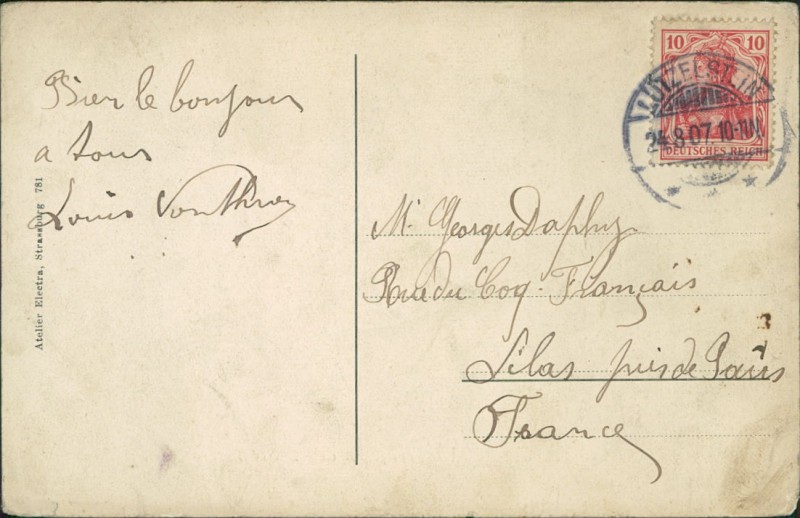 Bien le bonjour
a tous
Louis
Atelier Electra, Strassburg 781
10 10
DEUTSCHES REICH
LÜTZELSTEIN
24.8.07.10-11V.
Mr Georges Daphy
Rue du Coq-Français
Lilas près de Paris
France